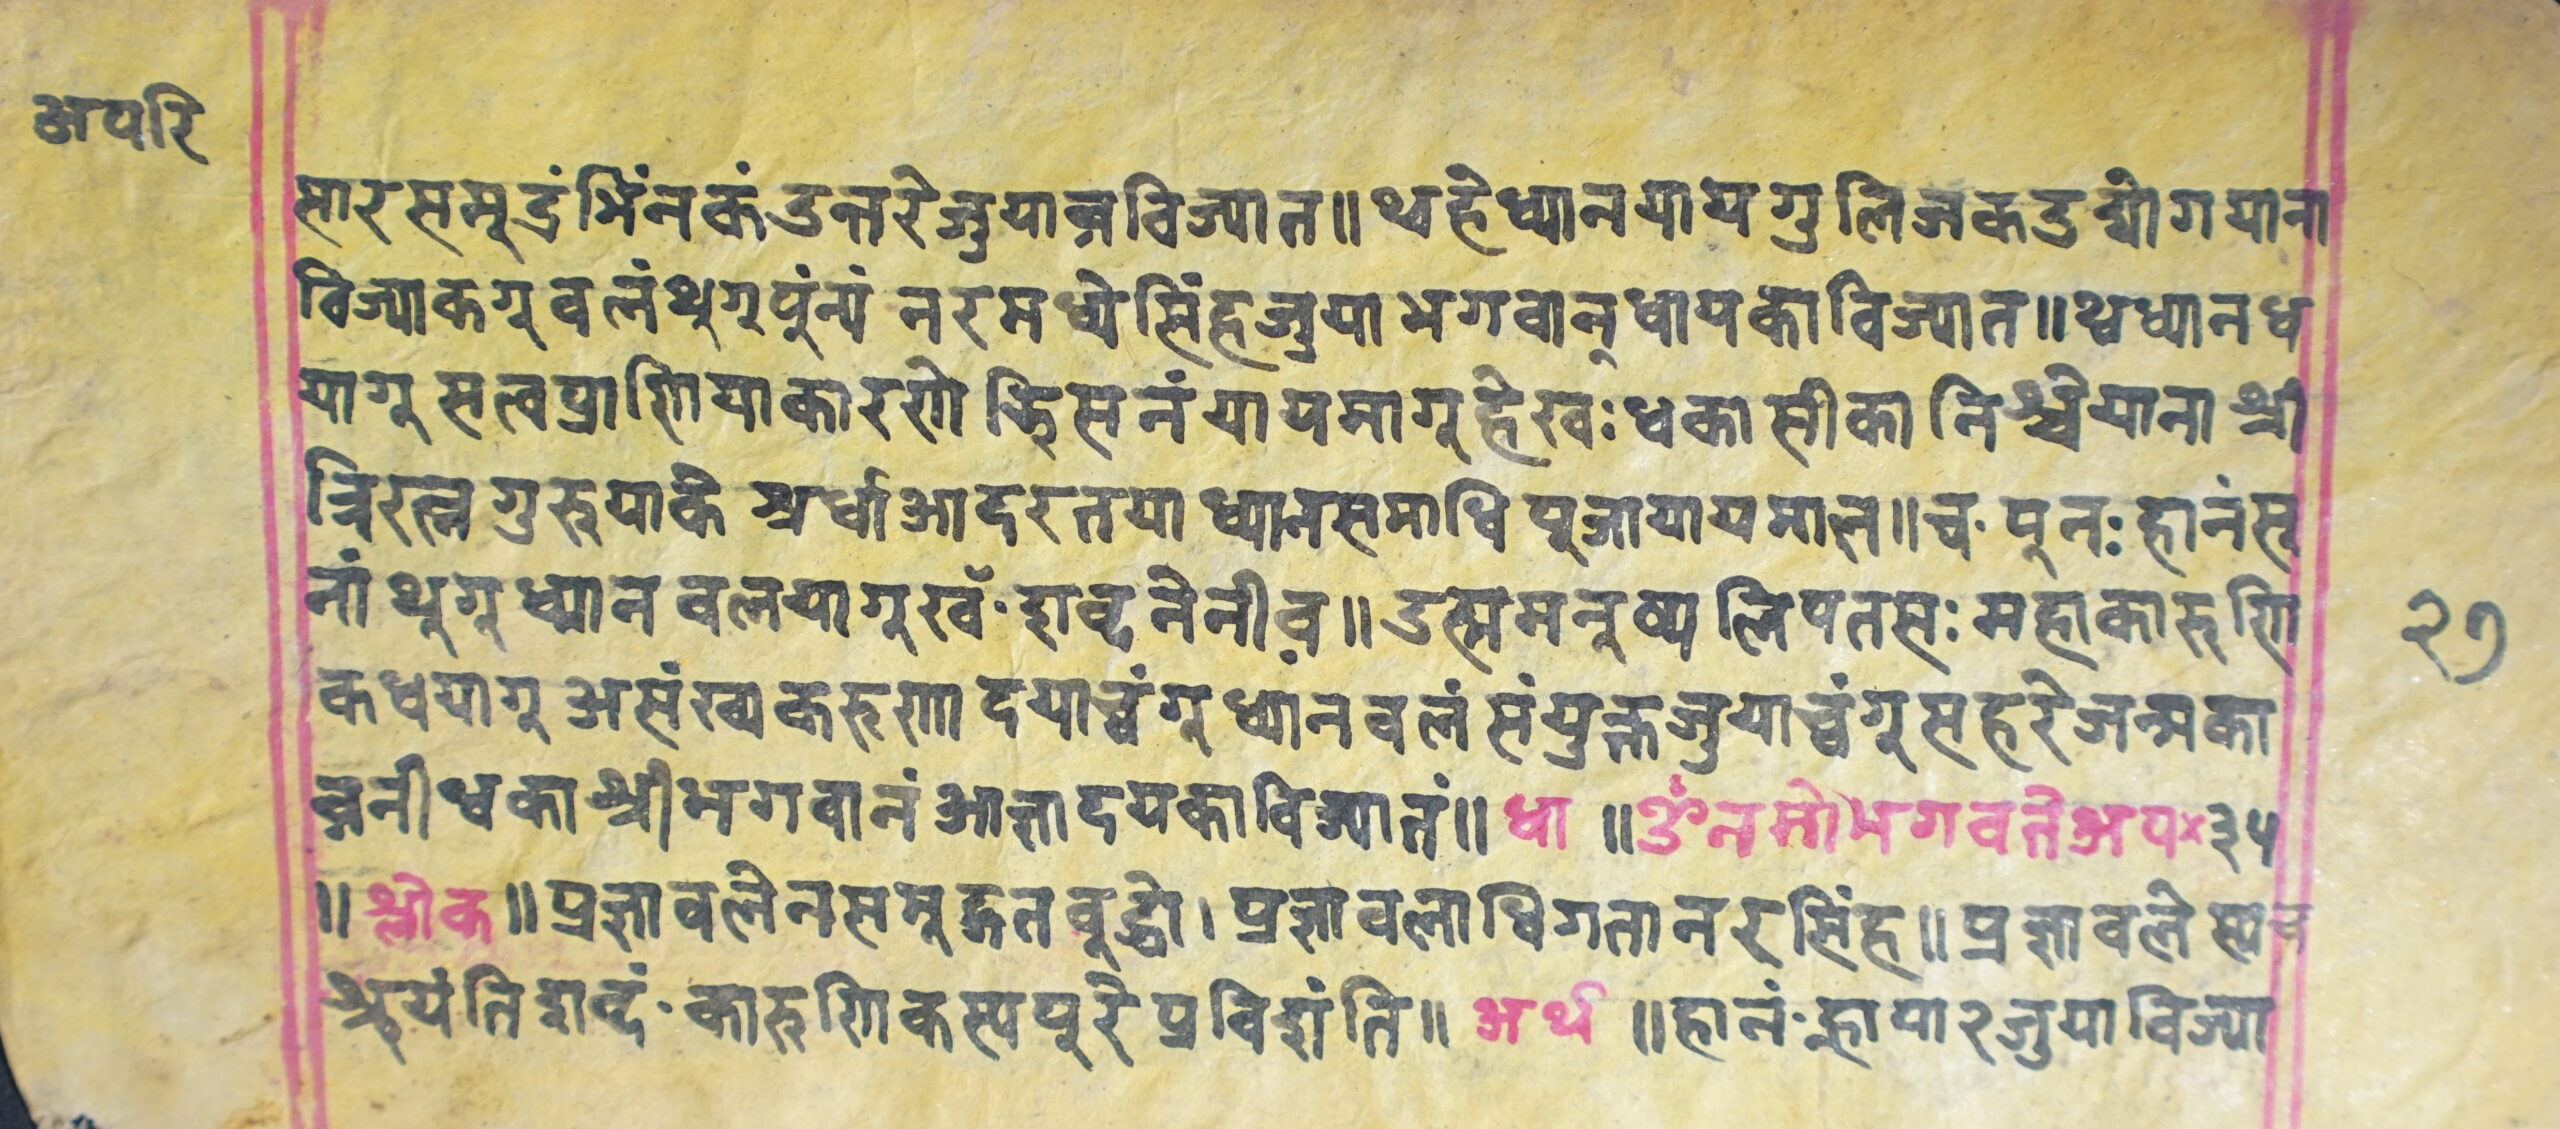 अपरि
सारसमूद्रं भिंनकं उत्तरेजुयाब्नविज्यात॥ थ्वहेध्यानयायगुलिजकउद्योगयाना
विज्याकगूवलंथुगूपुंन्यं नरमध्येसिंहजुयाभगवान्धायकाविज्यात॥थ्वध्यानध
यागू सत्वप्राणियाकारणे झिसनंयायमागूहेखःधकासीका निश्चैयाना श्री
त्रिरत्न गुरुयाके श्रर्धाआदरतया ध्यानसमाधि पूजायायमाल॥ च पुनः हानंसू
नां थुगू ध्यान वलयागूखँ शब्दनेनीव॥ उत्ममनूष्य लिपतसः महाकारुणि
कधयागू असंख्यकरुणा दयाच्वंगू ध्यानवलं संयुक्तजुयाच्वंगूसहरेजन्मका
ब्ननीधका श्रीभगवानं आज्ञादयकाविज्यातं॥ धा ॥ ॐनमोभगवतेअप×३५
॥ श्लोक॥ प्रज्ञावलेनसमूद्गतबुद्धो। प्रज्ञावलाधिगतानरसिंह॥ प्रज्ञावलेस्यच
श्रूयंतिशब्दं कारुणिकस्यपूरेप्रविशंति॥ अर्थ ॥हानं ह्नापा२जुयाविज्या
२७